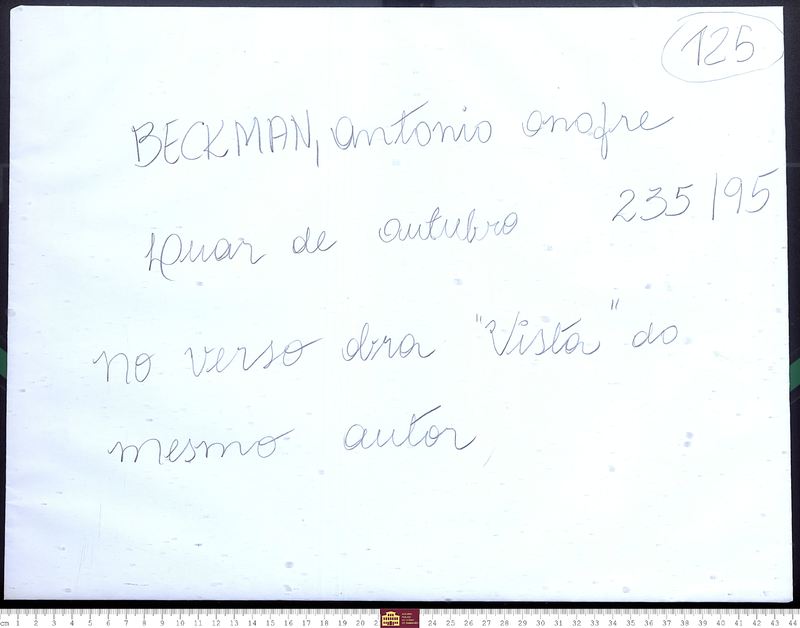 125
BECKMAN, antonio onofre
235/95
Luar de outubro
no verso obra "Vista" do
mesmo autor
cm 1 2 3 4 5 6 7 8 9 10 11 12 13 14 15 16 17 18 19 20 2 24 25 26 27 28 29 30 31 32 33 34 35 36 37 38 39 40 41 42 43 44